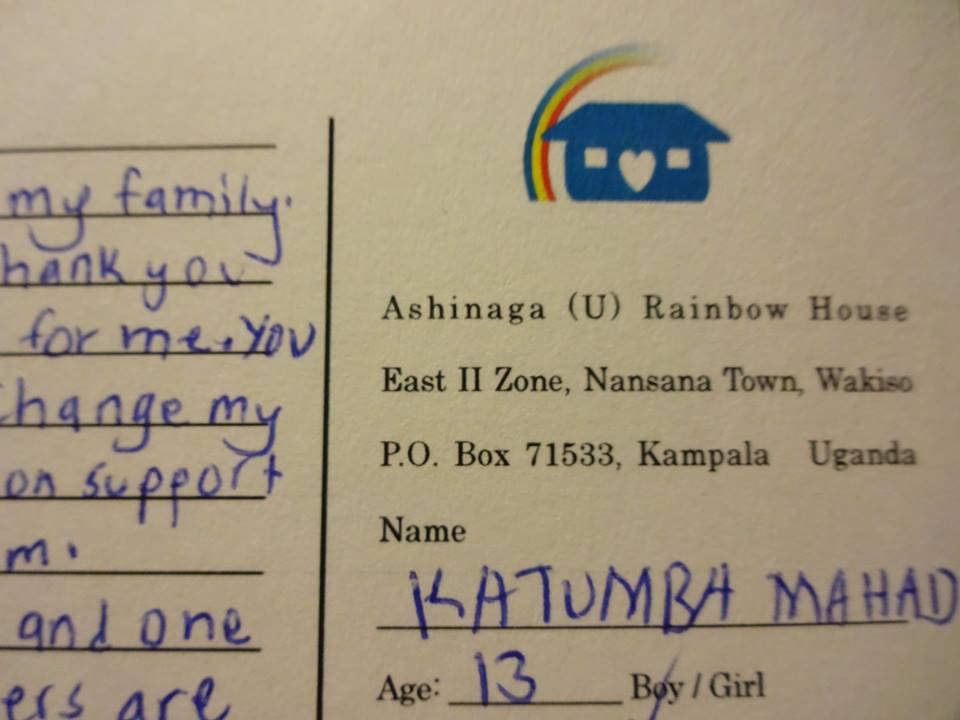 my family.
hank you
for me. You
change my
on support
m.
and one
ers are
Ashinaga (U) Rainbow House
East II Zone, Nansana Town, Wakiso
P.O. Box 71533, Kampala Uganda
Name
KATUMBA MAHAD
Age: 13 Boy / Girl